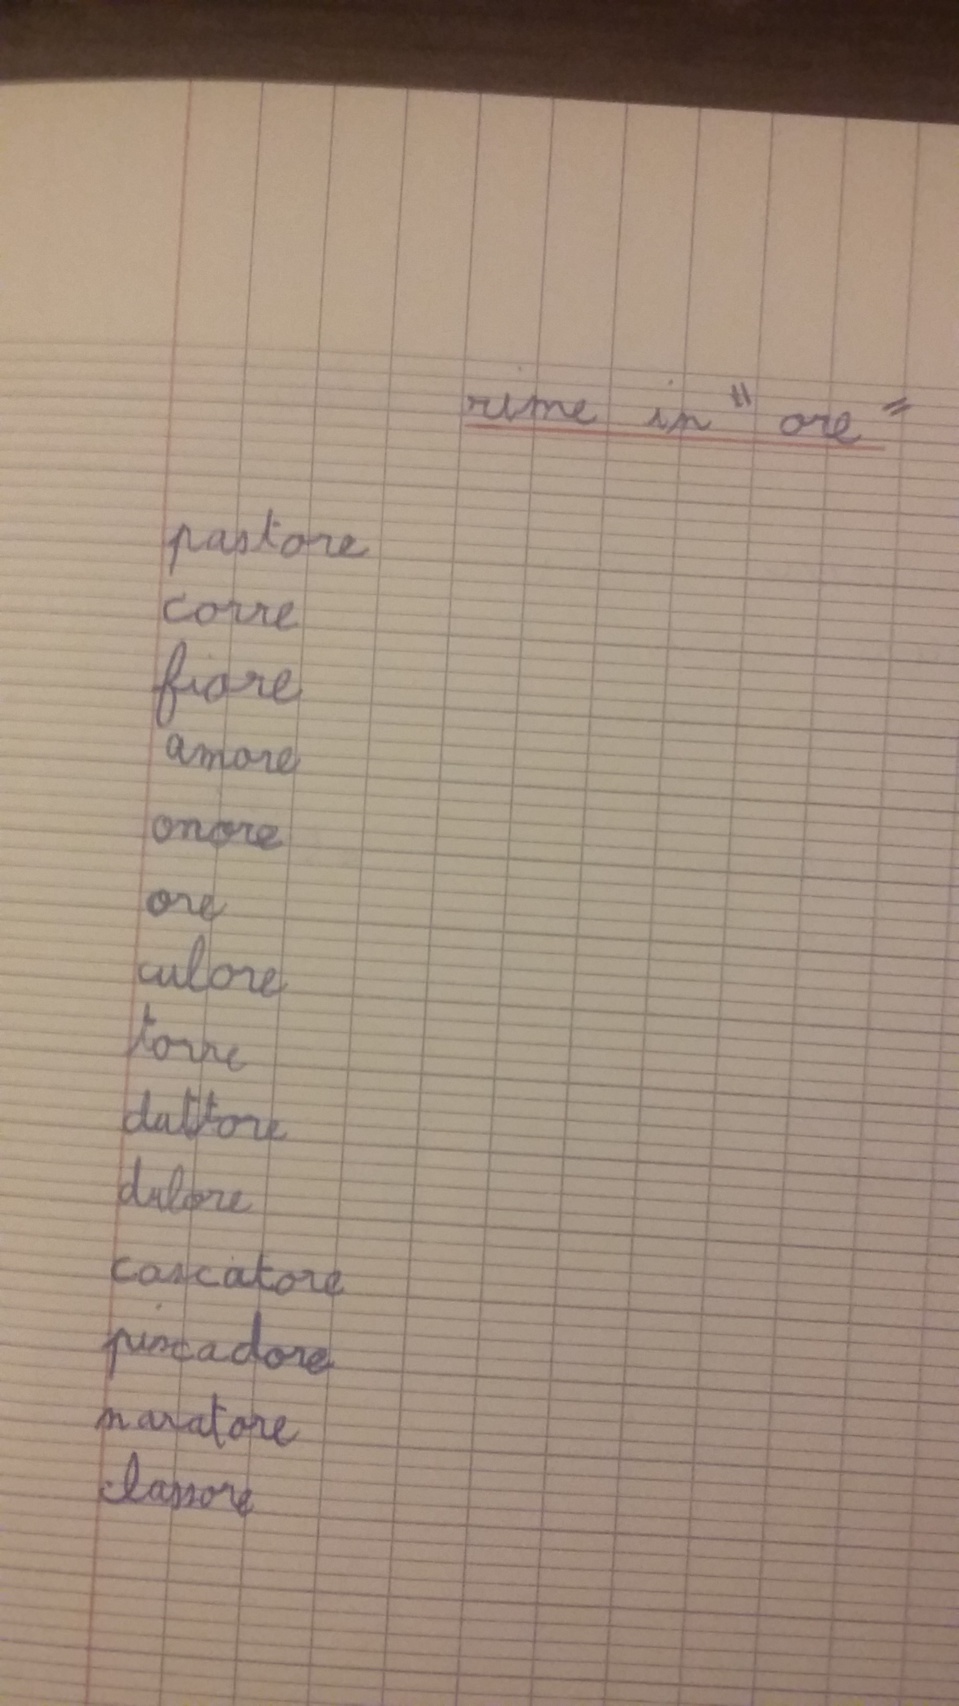 rime in " ore "
pastore
corre
fiore
amore
onore
ore
culore
torre
duttore
dulore
cascatore
piscadore
narratore
classore